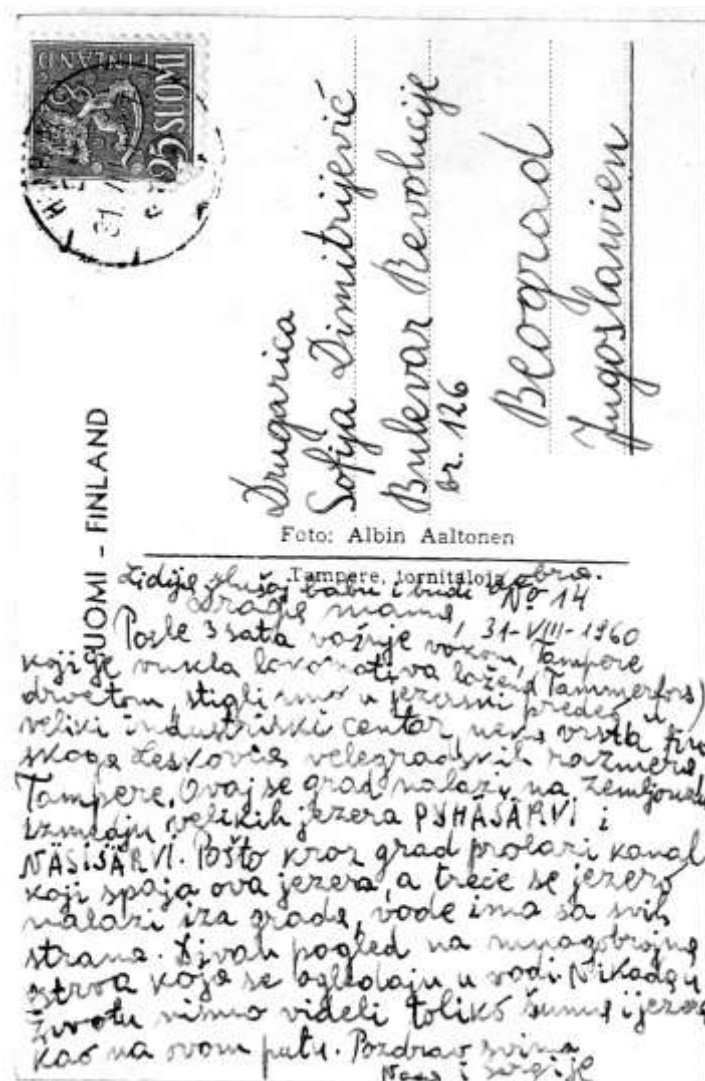 FINLAND
25 SUOMI
31.
SUOMI - FINLAND
Drugarica
Sofija Dimitrijević
Bulevar Revolucije
br. 126
Beograd
Jugoslawien
Foto: Albin Aaltonen
Tampere, tornitaloja
Lidija slušaj babu i budi dobra.
Draga mama, No 14
31-VIII-1960
Posle 3 sata vožnje vozom, Tampere
koji je vukla lokomotiva ložena (Tammerfors)
drvetom, stigli smo u jezerski predeo u
veliki industriski centar neka vrsta fin
skoga Leskovca velegradskih razmera
Tampere. Ovaj se grad nalazi na zemljouzu
između velikih jezera PYHÄSÄRVI i
NÄSISÄRVI. Pošto kroz grad prolazi kanal
koji spaja ova jezera, a treće se jezero
nalazi iza grada, vode ima sa svih
strana. Divan pogled na mnogobrojna
ostrva koja se ogledaju u vodi. Nikada u
životu nismo videli toliko šuma i jezera
kao na ovom putu. Pozdrav svima
i